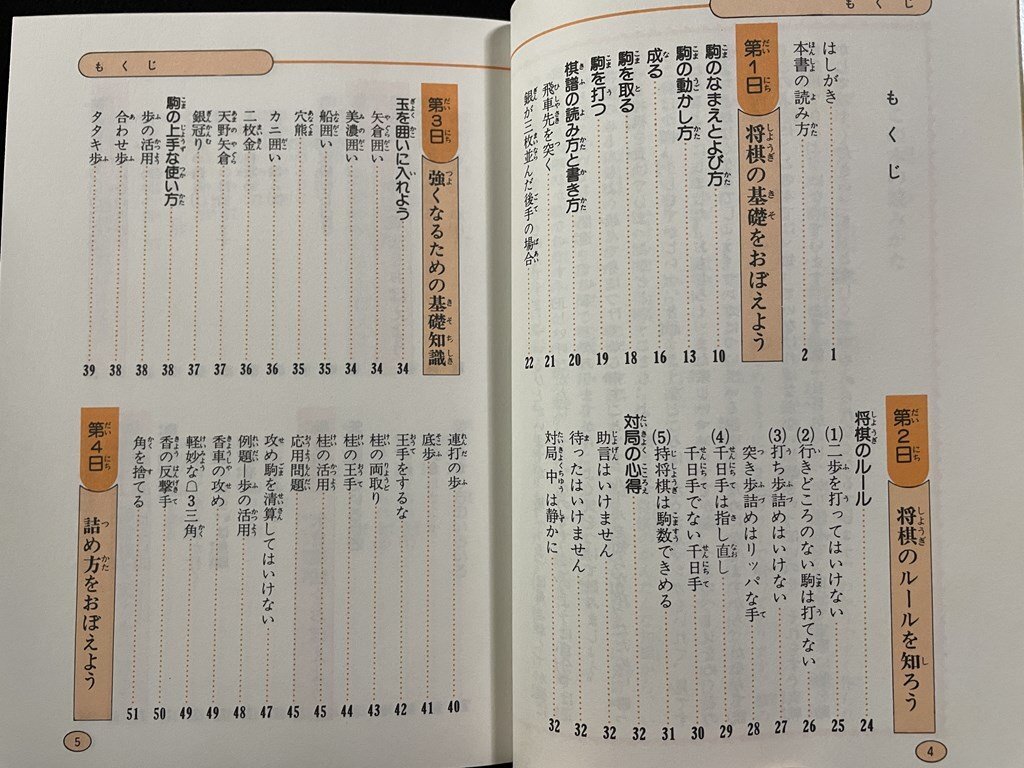 もくじ
もくじ
はしがき 1
本書の読み方 2
第1日 将棋の基礎をおぼえよう
駒のなまえとよび方 10
駒の動かし方 13
成る 16
駒を取る 18
駒を打つ 19
棋譜の読み方と書き方 20
飛車先を突く 21
銀が三枚並んだ後手の場合 22
第2日 将棋のルールを知ろう
将棋のルール 24
(1)二歩を打ってはいけない 25
(2)行きどころのない駒は打てない 26
(3)打ち歩詰めはいけない 27
突き歩詰めはリッパな手 28
(4)千日手は指し直し 29
千日手でない千日手 30
(5)持将棋は駒数できめる 31
対局の心得 32
助言はいけません 32
待ったはいけません 32
対局中は静かに 32
4
もくじ
第3日 強くなるための基礎知識
玉を囲いに入れよう 34
矢倉囲い 34
美濃囲い 34
船囲い 35
穴熊 35
カニ囲い 36
二枚金 36
天野矢倉 37
銀冠り 37
駒の上手な使い方 38
歩の活用 38
合わせ歩 38
タタキ歩 39
連打の歩 40
底歩 41
王手をするな 42
桂の両取り 43
桂の王手 44
桂の活用 45
応用問題 45
攻め駒を清算してはいけない 47
例題—歩の活用 48
香車の攻め 49
軽妙な☖3三角 49
香の反撃手 50
角を捨てる 51
第4日 詰め方をおぼえよう
5